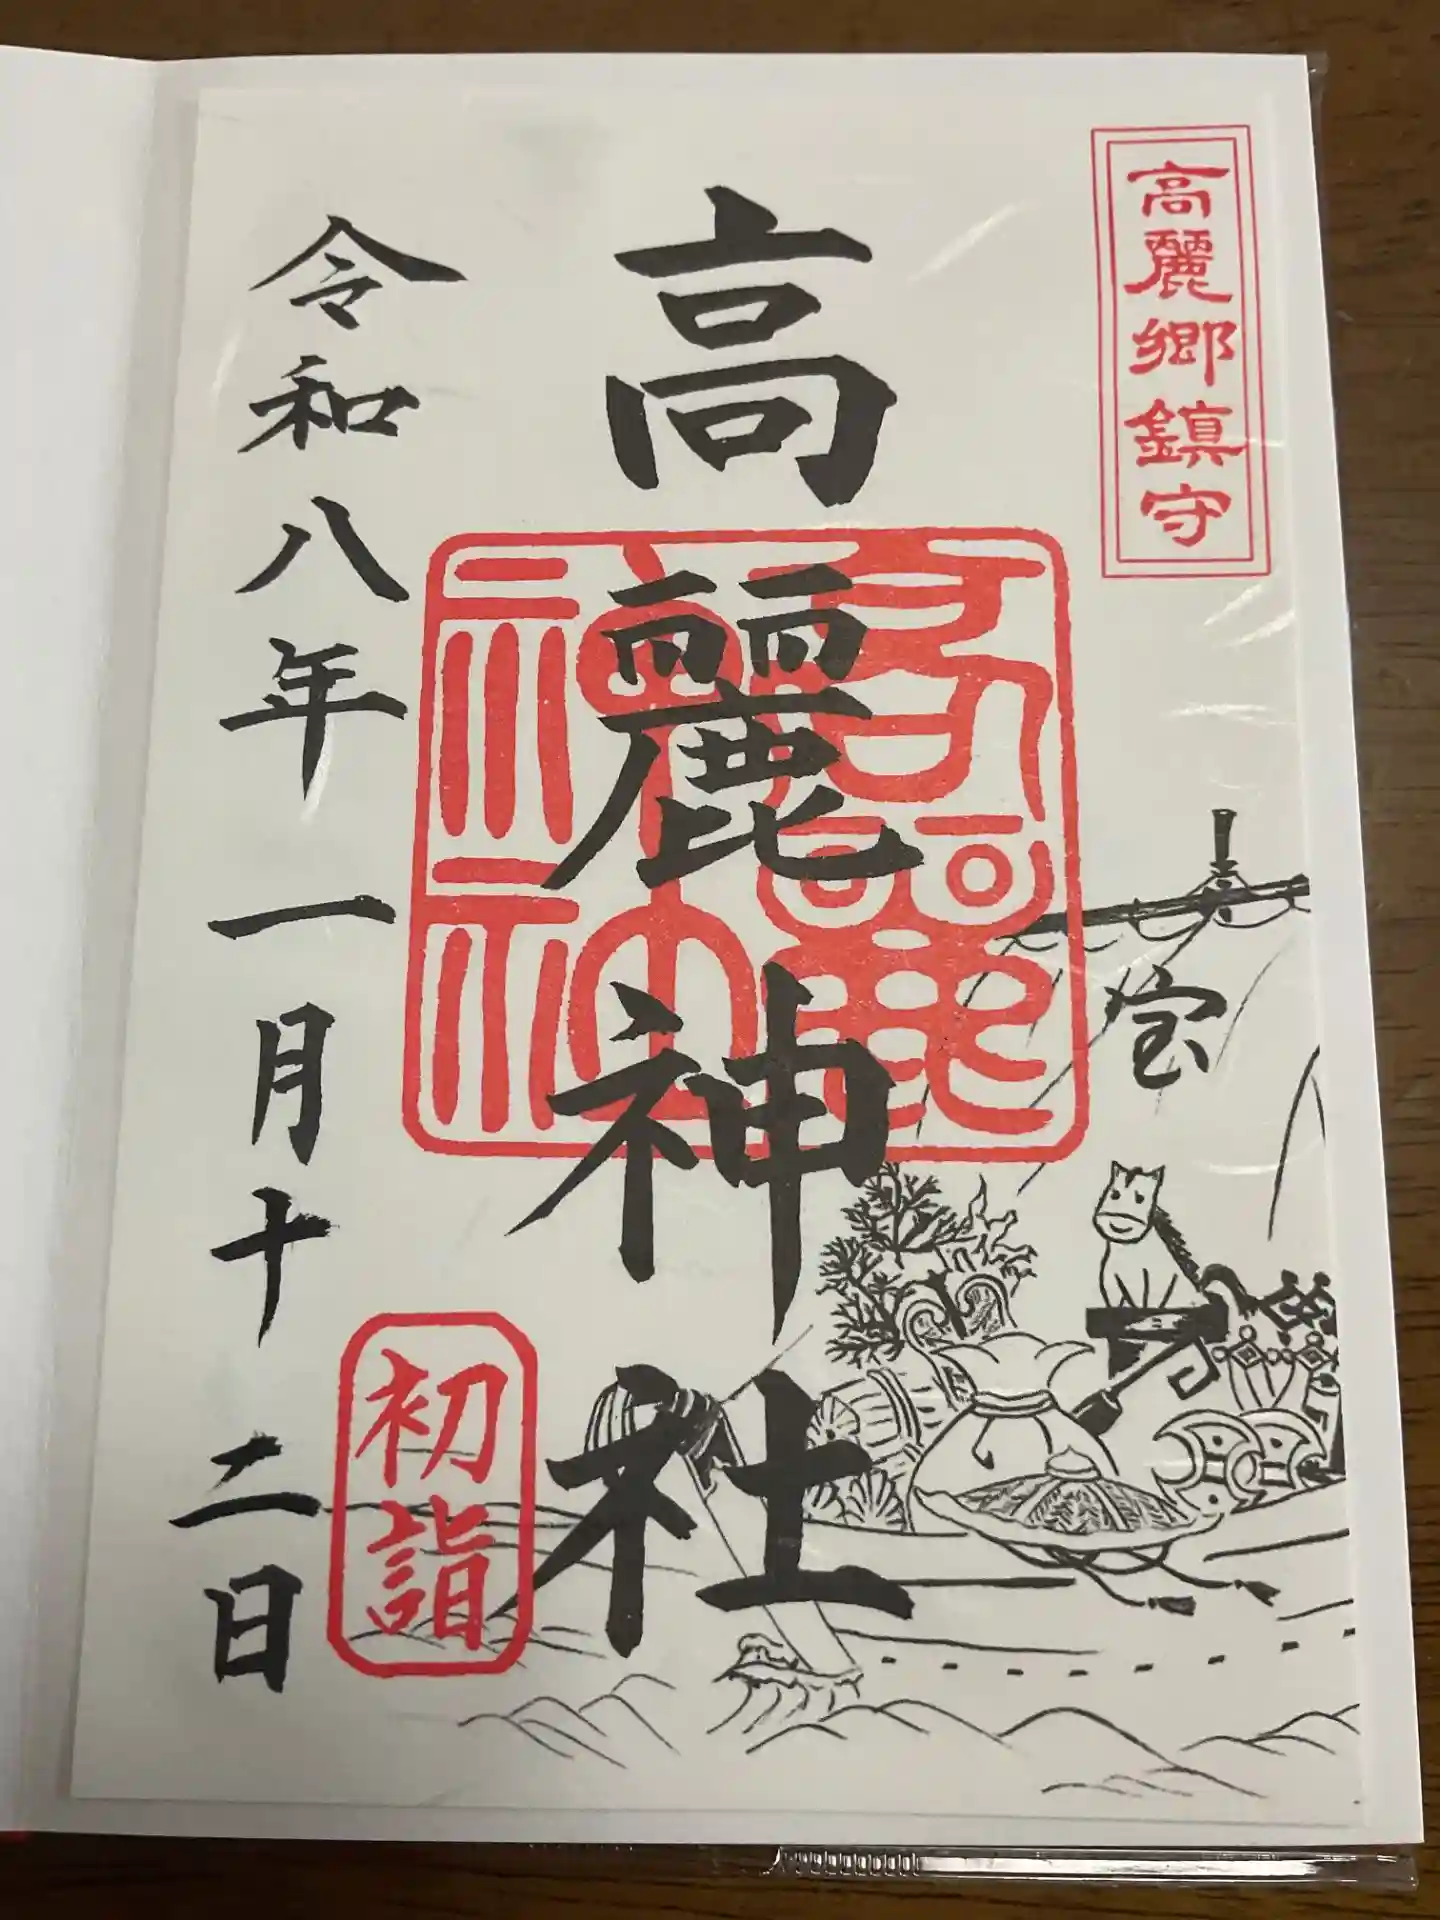 高麗郷鎮守
宝
高麗神社
高麗神社
初詣
令和八年一月十二日